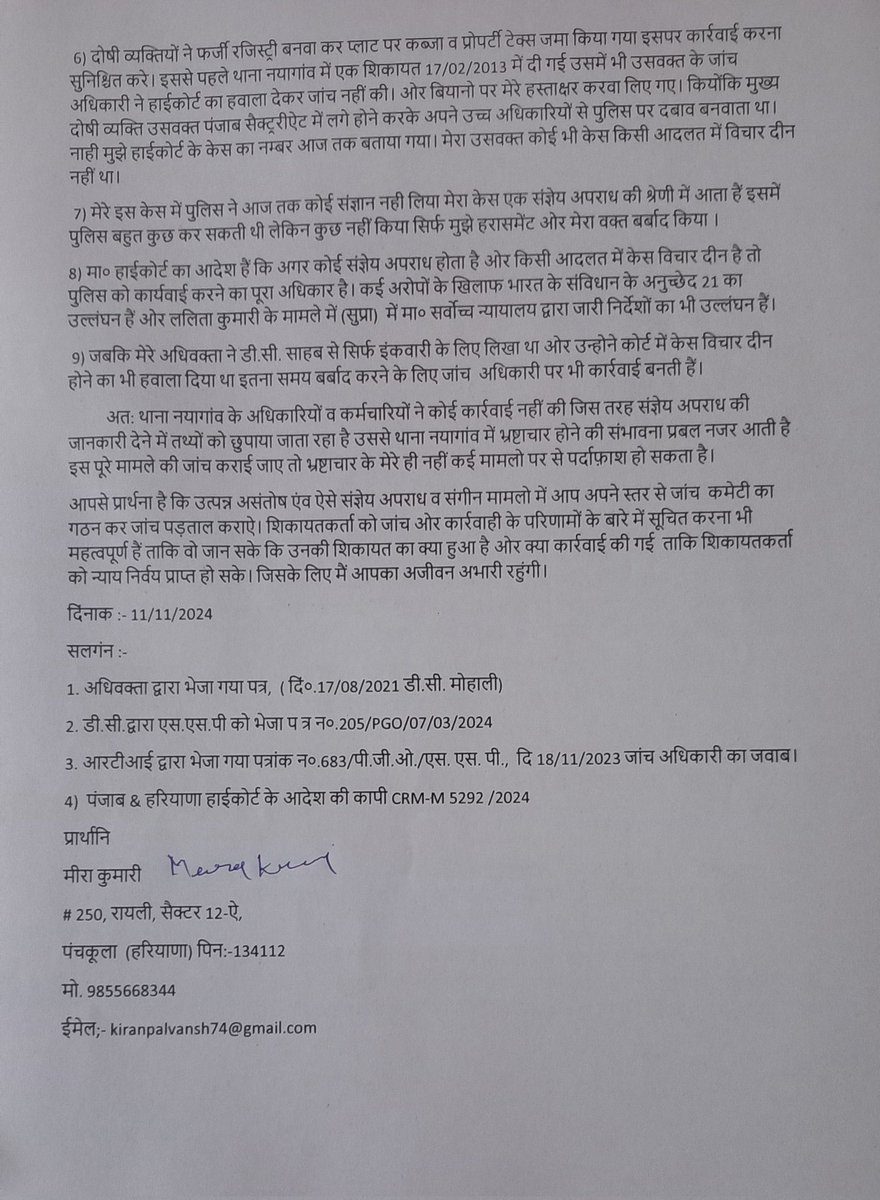 6) दोषी व्यक्तियों ने फर्जी रजिस्ट्री बनवा कर प्लाट पर कब्जा व प्रोपर्टी टेक्स जमा किया गया इसपर कार्रवाई करना
सुनिश्चित करे। इससे पहले थाना नयागांव में एक शिकायत 17/02/2013 में दी गई उसमें भी उसवक्त के जांच
अधिकारी ने हाईकोर्ट का हवाला देकर जांच नहीं की। ओर बियानो पर मेरे हस्ताक्षर करवा लिए गए। कियोंकि मुख्य
दोषी व्यक्ति उसवक्त पंजाब सैक्ट्ररीऐट में लगे होने करके अपने उच्च अधिकारियों से पुलिस पर दबाव बनवाता था।
नाही मुझे हाईकोर्ट के केस का नम्बर आज तक बताया गया। मेरा उसवक्त कोई भी केस किसी आदलत में विचार दीन
नहीं था।
7) मेरे इस केस में पुलिस ने आज तक कोई संज्ञान नही लिया मेरा केस एक संज्ञेय अपराध की श्रेणी में आता हैं इसमें
पुलिस बहुत कुछ कर सकती थी लेकिन कुछ नहीं किया सिर्फ मुझे हरासमेंट ओर मेरा वक्त बर्बाद किया ।
8) मा० हाईकोर्ट का आदेश हैं कि अगर कोई संज्ञेय अपराध होता है ओर किसी आदलत में केस विचार दीन है तो
पुलिस को कार्यवाई करने का पूरा अधिकार है। कई अरोपों के खिलाफ भारत के संविधान के अनुच्छेद 21 का
उल्लंघन हैं ओर ललिता कुमारी के मामले में (सुप्रा) में मा० सर्वोच्च न्यायालय द्वारा जारी निर्देशों का भी उल्लंघन हैं।
9) जबकि मेरे अधिवक्ता ने डी.सी. साहब से सिर्फ इंकवारी के लिए लिखा था ओर उन्होने कोर्ट में केस विचार दीन
होने का भी हवाला दिया था इतना समय बर्बाद करने के लिए जांच अधिकारी पर भी कार्रवाई बनती हैं।
अतः थाना नयागांव के अधिकारियों व कर्मचारियों ने कोई कार्रवाई नहीं की जिस तरह संज्ञेय अपराध की
जानकारी देने में तथ्यों को छुपाया जाता रहा है उससे थाना नयागांव में भ्रष्टाचार होने की संभावना प्रबल नजर आती है
इस पूरे मामले की जांच कराई जाए तो भ्रष्टाचार के मेरे ही नहीं कई मामलो पर से पर्दाफ़ाश हो सकता है।
आपसे प्रार्थना है कि उत्पन्न असंतोष एंव ऐसे संज्ञेय अपराध व संगीन मामलो में आप अपने स्तर से जांच कमेटी का
गठन कर जांच पड़ताल कराऐ। शिकायतकर्ता को जांच ओर कार्रवाही के परिणामों के बारे में सूचित करना भी
महत्वपूर्ण हैं ताकि वो जान सके कि उनकी शिकायत का क्या हुआ है ओर क्या कार्रवाई की गई ताकि शिकायतकर्ता
को न्याय निर्वय प्राप्त हो सके। जिसके लिए मैं आपका अजीवन अभारी रहुंगी।
दिंनाक :- 11/11/2024
सलगंन :-
1. अधिवक्ता द्वारा भेजा गया पत्र, ( दिं०.17/08/2021 डी.सी. मोहाली)
2. डी.सी.द्वारा एस.एस.पी को भेजा प त्र न०.205/PGO/07/03/2024
3. आरटीआई द्वारा भेजा गया पत्रांक न०.683/पी.जी.ओ./एस. एस. पी., दि 18/11/2023 जांच अधिकारी का जवाब।
4) पंजाब & हरियाणा हाईकोर्ट के आदेश की कापी CRM-M 5292 /2024
प्रार्थानि
मीरा कुमारी
# 250, रायली, सैक्टर 12-ऐ,
पंचकूला (हरियाणा) पिन:-134112
मो. 9855668344
ईमेल;- kiranpalvansh74@gmail.com